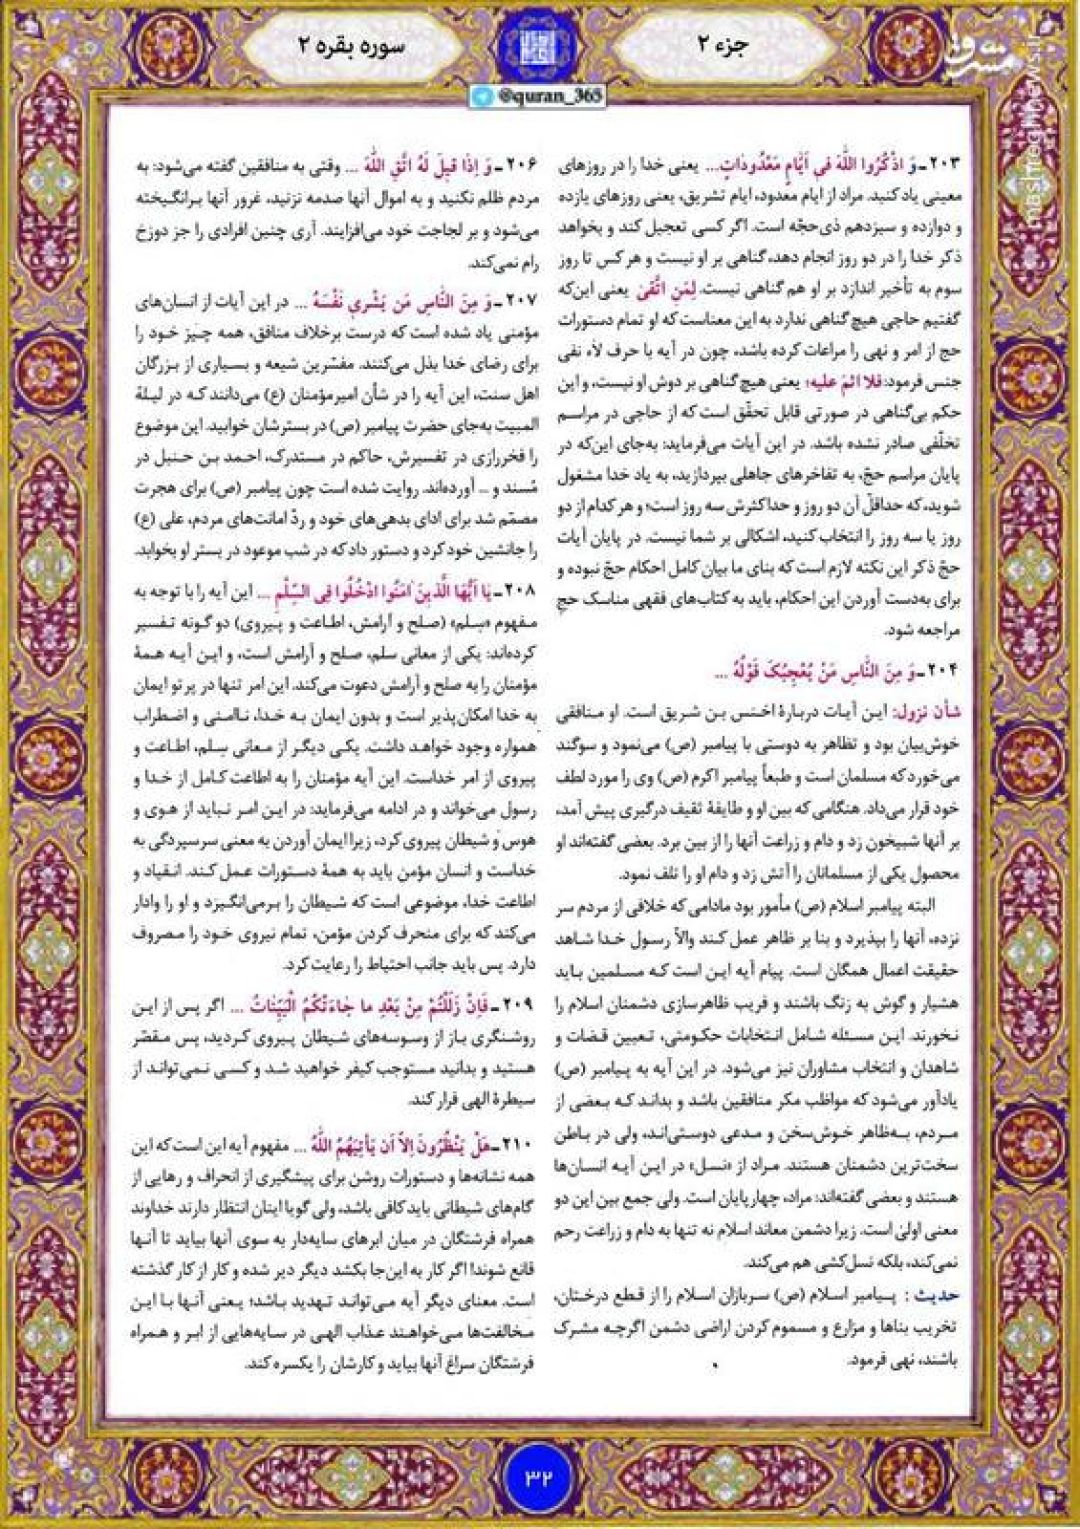 جزء ۲
سوره بقره ۲
@quran_365
مشرق
mashreghnews.ir
۲۰۳ـ وَ اذْکُرُوا اللّٰهَ فی اَیّٰامٍ مَعْدُودٰاتٍ... یعنی خدا را در روزهای
معینی یاد کنید. مراد از ایام معدود، ایام تشریق، یعنی روزهای یازده
و دوازده و سیزدهم ذی‌حجّه است. اگر کسی تعجیل کند و بخواهد
ذکر خدا را در دو روز انجام دهد، گناهی بر او نیست و هر کس تا روز
سوم به تأخیر اندازد بر او هم گناهی نیست. لِمَنِ اتَّقیٰ یعنی این‌که
گفتیم حاجی هیچ گناهی ندارد به این معناست که او تمام دستورات
حج از امر و نهی را مراعات کرده باشد، چون در آیه با حرف لاء نفی
جنس فرمود: فلا اثمَ علیه؛ یعنی هیچ گناهی بر دوش او نیست، و این
حکم بی‌گناهی در صورتی قابل تحقّق است که از حاجی در مراسم
تخلّفی صادر نشده باشد. در این آیات می‌فرماید: به‌جای این‌که در
پایان مراسم حج، به تفاخرهای جاهلی بپردازید، به یاد خدا مشغول
شوید، که حداقلّ آن دو روز و حداکثرش سه روز است؛ و هر کدام از دو
روز یا سه روز را انتخاب کنید، اشکالی بر شما نیست. در پایان آیات
حجّ ذکر این نکته لازم است که بنای ما بیان کامل احکام حجّ نبوده و
برای به‌دست آوردن این احکام، باید به کتاب‌های فقهی مناسک حج
مراجعه شود.
۲۰۴ـ وَ مِنَ النّٰاسِ مَنْ یُعْجِبُکَ قَوْلُهُ ...
شأن نزول: این آیات دربارهٔ اخنس بن شریق است. او منافقی
خوش‌بیان بود و تظاهر به دوستی با پیامبر (ص) می‌نمود و سوگند
می‌خورد که مسلمان است و طبعاً پیامبر اکرم (ص) وی را مورد لطف
خود قرار می‌داد. هنگامی که بین او و طایفهٔ ثقیف درگیری پیش آمد،
بر آنها شبیخون زد و دام و زراعت آنها را از بین برد. بعضی گفته‌اند او
محصول یکی از مسلمانان را آتش زد و دام او را تلف نمود.
البته پیامبر اسلام (ص) مأمور بود مادامی که خلافی از مردم سر
نزده، آنها را بپذیرد و بنا بر ظاهر عمل کند والّا رسول خدا شاهد
حقیقت اعمال همگان است. پیام آیه این است که مسلمین باید
هشیار و گوش به زنگ باشند و فریب ظاهرسازی دشمنان اسلام را
نخورند. این مسئله شامل انتخابات حکومتی، تعیین قضات و
شاهدان و انتخاب مشاوران نیز می‌شود. در این آیه به پیامبر (ص)
یادآور می‌شود که مواظب مکر منافقین باشد و بداند که بعضی از
مردم، به‌ظاهر خوش‌سخن و مدعی دوستی‌اند، ولی در باطن
سخت‌ترین دشمنان هستند. مراد از «نسل» در این آیه انسان‌ها
هستند و بعضی گفته‌اند: مراد، چهارپایان است. ولی جمع بین این دو
معنی اولیٰ است. زیرا دشمن معاند اسلام نه تنها به دام و زراعت رحم
نمی‌کند، بلکه نسل‌کشی هم می‌کند.
حدیث : پیامبر اسلام (ص) سربازان اسلام را از قطع درختان،
تخریب بناها و مزارع و مسموم کردن اراضی دشمن اگرچه مشرک
باشند، نهی فرمود.
۲۰۶ـ وَ اِذٰا قیلَ لَهُ اتَّقِ اللّٰهَ ... وقتی به منافقین گفته می‌شود: به
مردم ظلم نکنید و به اموال آنها صدمه نزنید، غرور آنها برانگیخته
می‌شود و بر لجاجت خود می‌افزایند. آری چنین افرادی را جز دوزخ
رام نمی‌کند.
۲۰۷ـ وَ مِنَ النّٰاسِ مَن یَشْری نَفْسَهُ ... در این آیات از انسان‌های
مؤمنی یاد شده است که درست برخلاف منافق، همه چیز خود را
برای رضای خدا بذل می‌کنند. مفسّرین شیعه و بسیاری از بزرگان
اهل سنت، این آیه را در شأن امیرمؤمنان (ع) می‌دانند که در لیلة
المبیت به‌جای حضرت پیامبر (ص) در بسترشان خوابید. این موضوع
را فخررازی در تفسیرش، حاکم در مستدرک، احمد بن حنبل در
مُسند و ... آورده‌اند. روایت شده است چون پیامبر (ص) برای هجرت
مصمّم شد برای ادای بدهی‌های خود و ردّ امانت‌های مردم، علی (ع)
را جانشین خود کرد و دستور داد که در شب موعود در بستر او بخوابد.
۲۰۸ـ یٰا اَیُّهَا الَّذینَ اٰمَنُوا ادْخُلُوا فِی السِّلْمِ ... این آیه را با توجه به
مفهوم «سِلم» (صلح و آرامش، اطاعت و پیروی) دو گونه تفسیر
کرده‌اند: یکی از معانی سلم، صلح و آرامش است، و این آیه همهٔ
مؤمنان را به صلح و آرامش دعوت می‌کند. این امر تنها در پرتو ایمان
به خدا امکان‌پذیر است و بدون ایمان به خدا، ناامنی و اضطراب
همواره وجود خواهد داشت. یکی دیگر از معانی سِلم، اطاعت و
پیروی از امر خداست. این آیه مؤمنان را به اطاعت کامل از خدا و
رسول می‌خواند و در ادامه می‌فرماید: در این امر نباید از هوی و
هوس و شیطان پیروی کرد، زیرا ایمان آوردن به معنی سرسپردگی به
خداست و انسان مؤمن باید به همهٔ دستورات عمل کند. انقیاد و
اطاعت خدا، موضوعی است که شیطان را برمی‌انگیزد و او را وادار
می‌کند که برای منحرف کردن مؤمن، تمام نیروی خود را مصروف
دارد. پس باید جانب احتیاط را رعایت کرد.
۲۰۹ـ فَاِنْ زَلَلْتُمْ مِنْ بَعْدِ ما جٰاءَتْکُمُ الْبَیِّنٰاتُ ... اگر پس از این
روشنگری باز از وسوسه‌های شیطان پیروی کردید، پس مقصّر
هستید و بدانید مستوجب کیفر خواهید شد و کسی نمی‌تواند از
سیطرهٔ الهی فرار کند.
۲۱۰ـ هَلْ یَنْظُرُونَ اِلاّٰ اَن یَأتِیَهُمُ اللّٰهُ ... مفهوم آیه این است که این
همه نشانه‌ها و دستورات روشن برای پیشگیری از انحراف و رهایی از
گام‌های شیطانی باید کافی باشد، ولی گویا اینان انتظار دارند خداوند
همراه فرشتگان در میان ابرهای سایه‌دار به سوی آنها بیاید تا آنها
قانع شوند! اگر کار به این‌جا بکشد دیگر دیر شده و کار از کار گذشته
است. معنای دیگر آیه می‌تواند تهدید باشد؛ یعنی آنها با این
مخالفت‌ها می‌خواهند عذاب الهی در سایه‌هایی از ابر و همراه
فرشتگان سراغ آنها بیاید و کارشان را یکسره کند.
۳۲